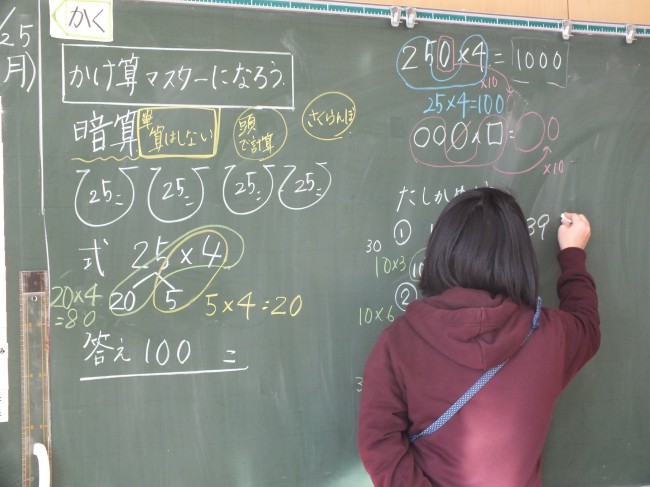 かく
/25
月)
かけ算マスターになろう.
暗算
筆算はしない
頭で計算
さくらんぼ
25=
25=
25=
25=
式 25×4
20 5
20×4
=80
5×4=20
答え 100
250×4=1000
×10
25×4=100
○○○×□=○0
×10
たしかめ
30
①
39
10×3
②
10×6